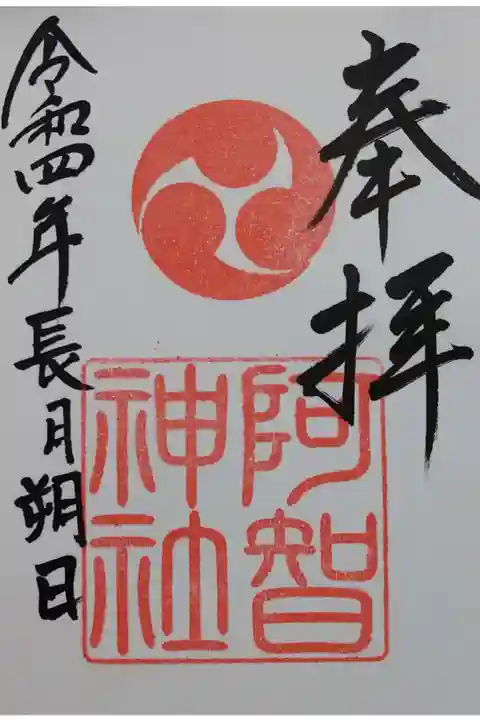 奉拝
阿智
神社
令和四年長月朔日